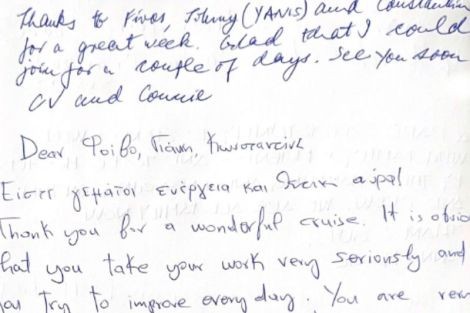 Thanks to Fivos, Johnny (YANIS) and Constantin
for a great week. Glad that I could
join for a couple of days. See you soon
CV and Connie
Dear Φοίβο, Γιάννη, Κωνσταντίνε
Είστε γεμάτοι ενέργεια και θετική αύρα!
Thank you for a wonderful cruise. It is obvio
that you take your work very seriously and
you try to improve every day. You are very